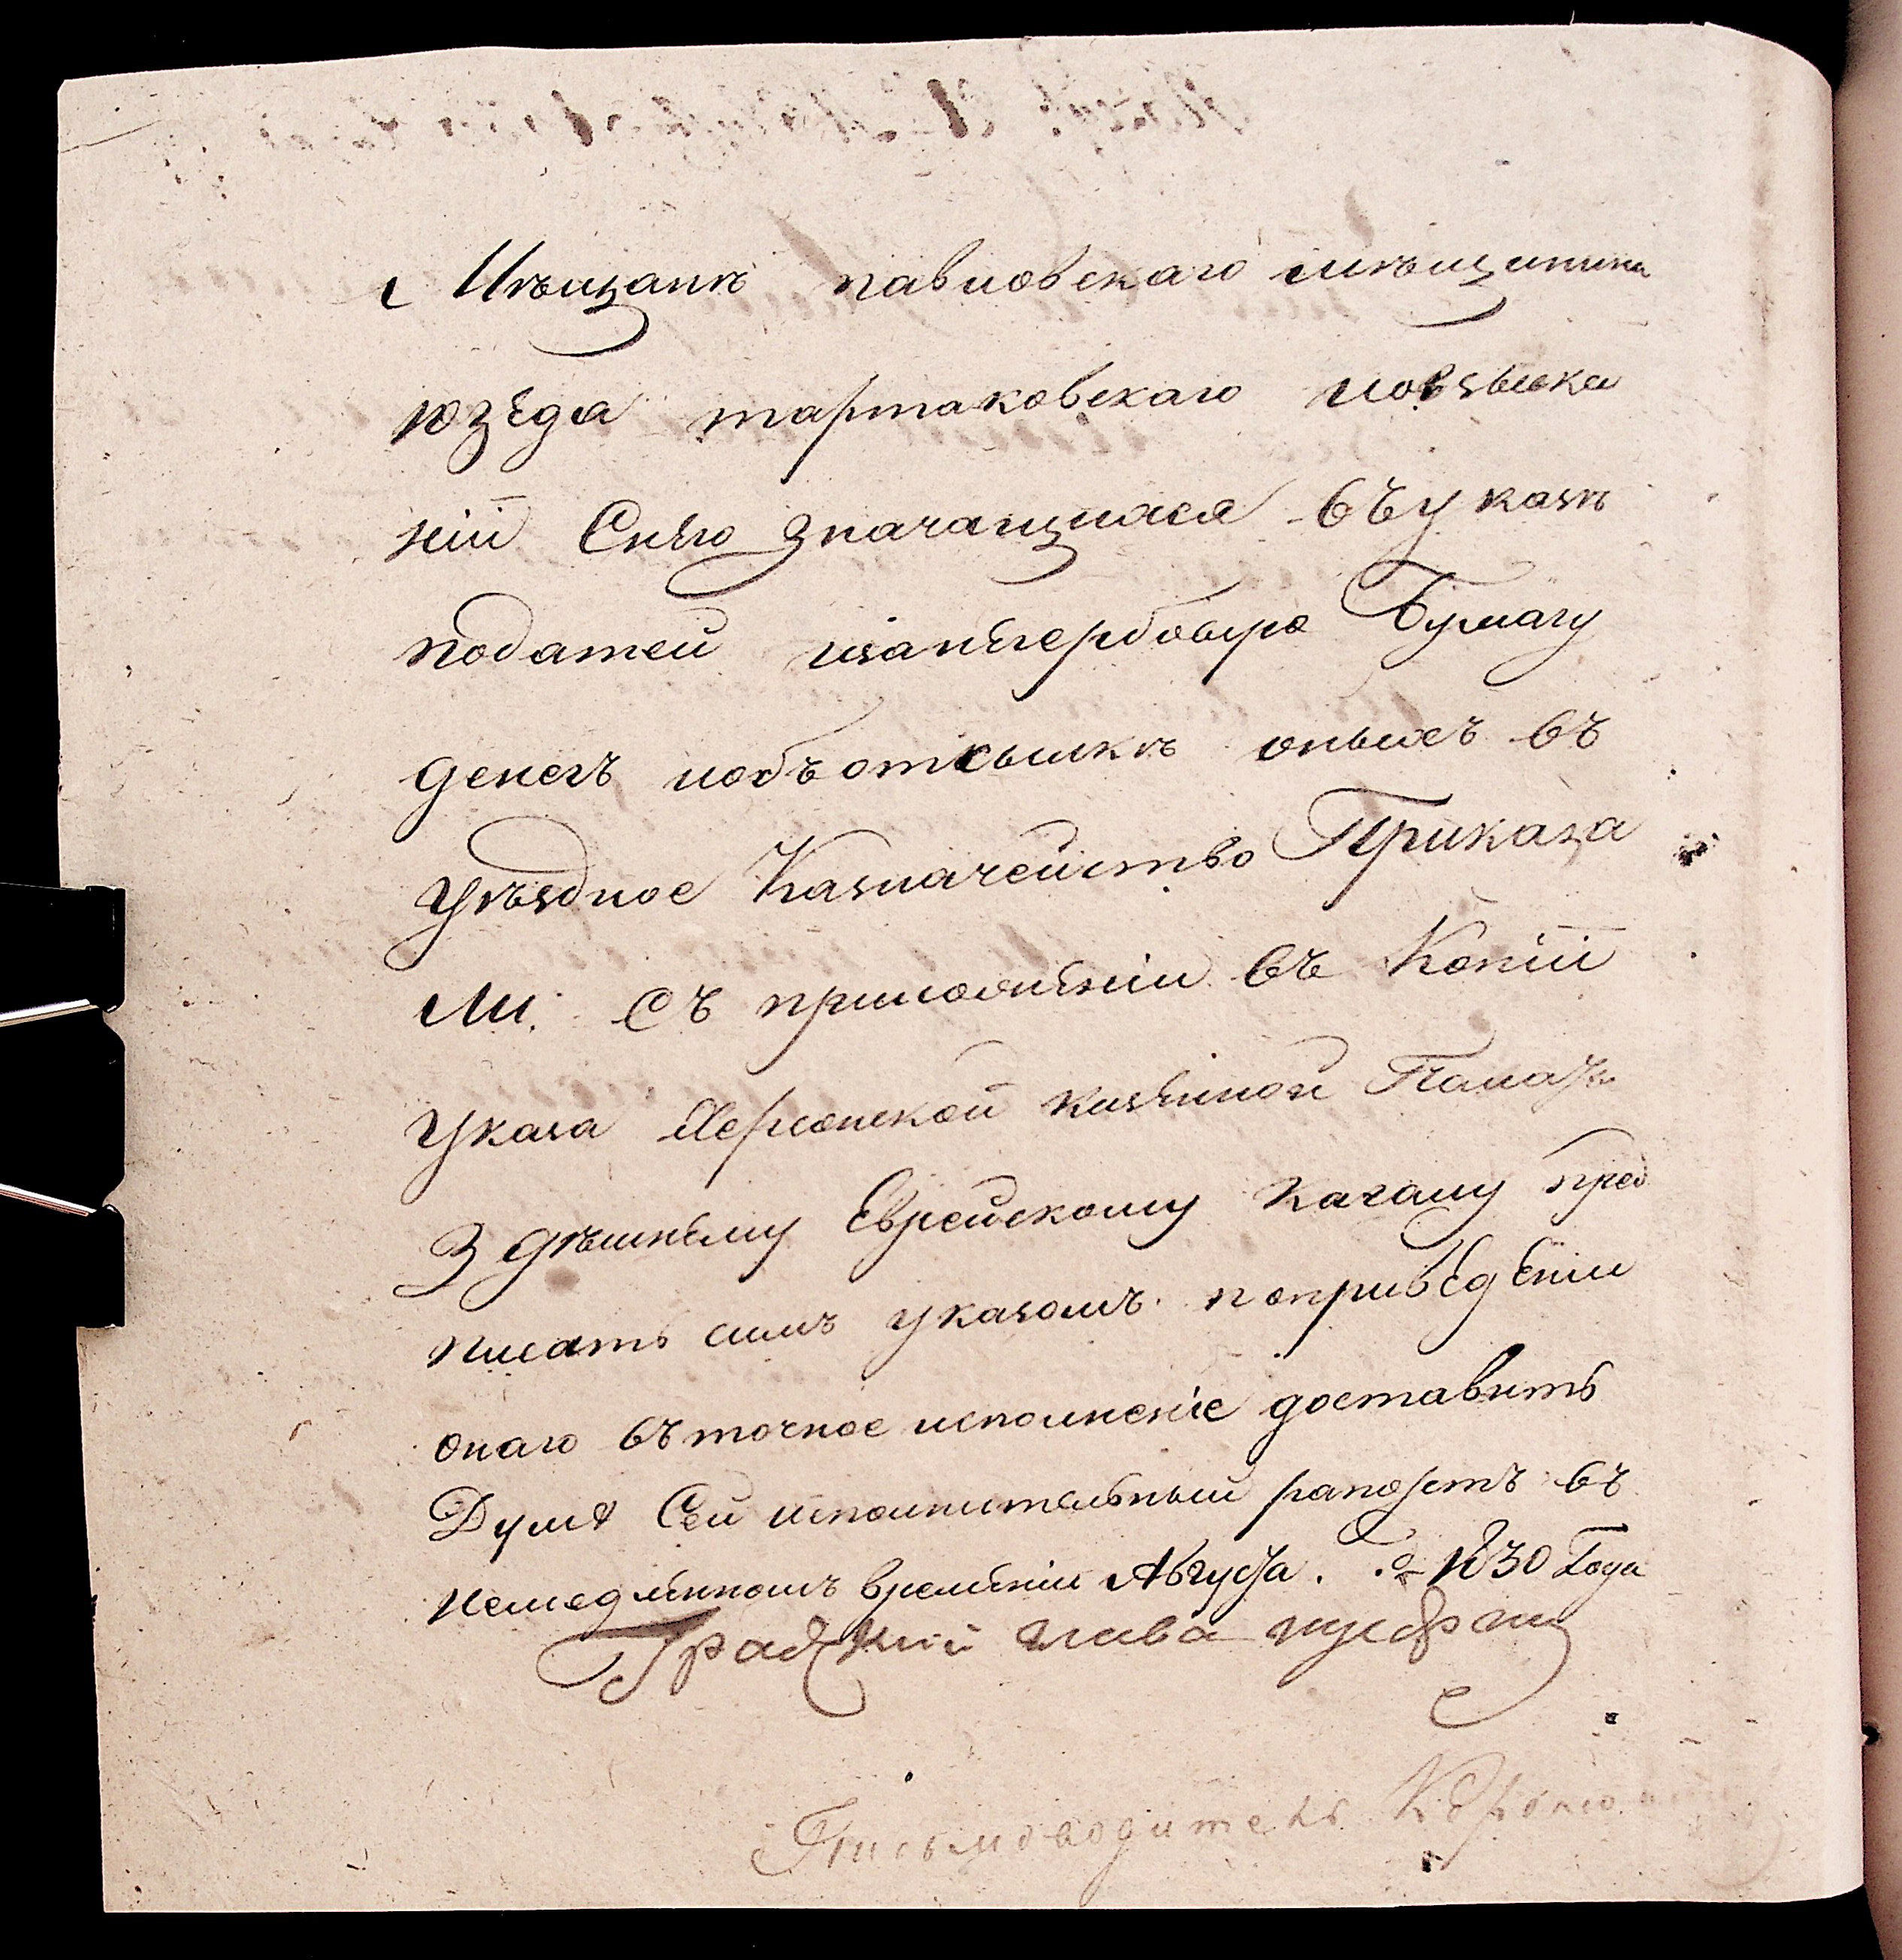 Мѣщанѣ павловскаго мѣщанина
юзеда тартаковскаго о взыска
ніи Снѣго значащихся въ указѣ
податей изагербовую Бумагу
денегъ иобъотсылкѣ оныхъ въ
уѣздное Казначейство Приказа
ли: Съ приложеніи въ Копіи
указа Херсонской казенной Палаты
Здѣшнему Еврейскому кагалу пред
писать симъ указомъ поприведеніи
онаго въточное исполненіе доставить
Думѣ Сей исполнительный рапортъ въ
немедленномъ времѣни Августа. 1830 Года
Градскій глава
Письмоводитель